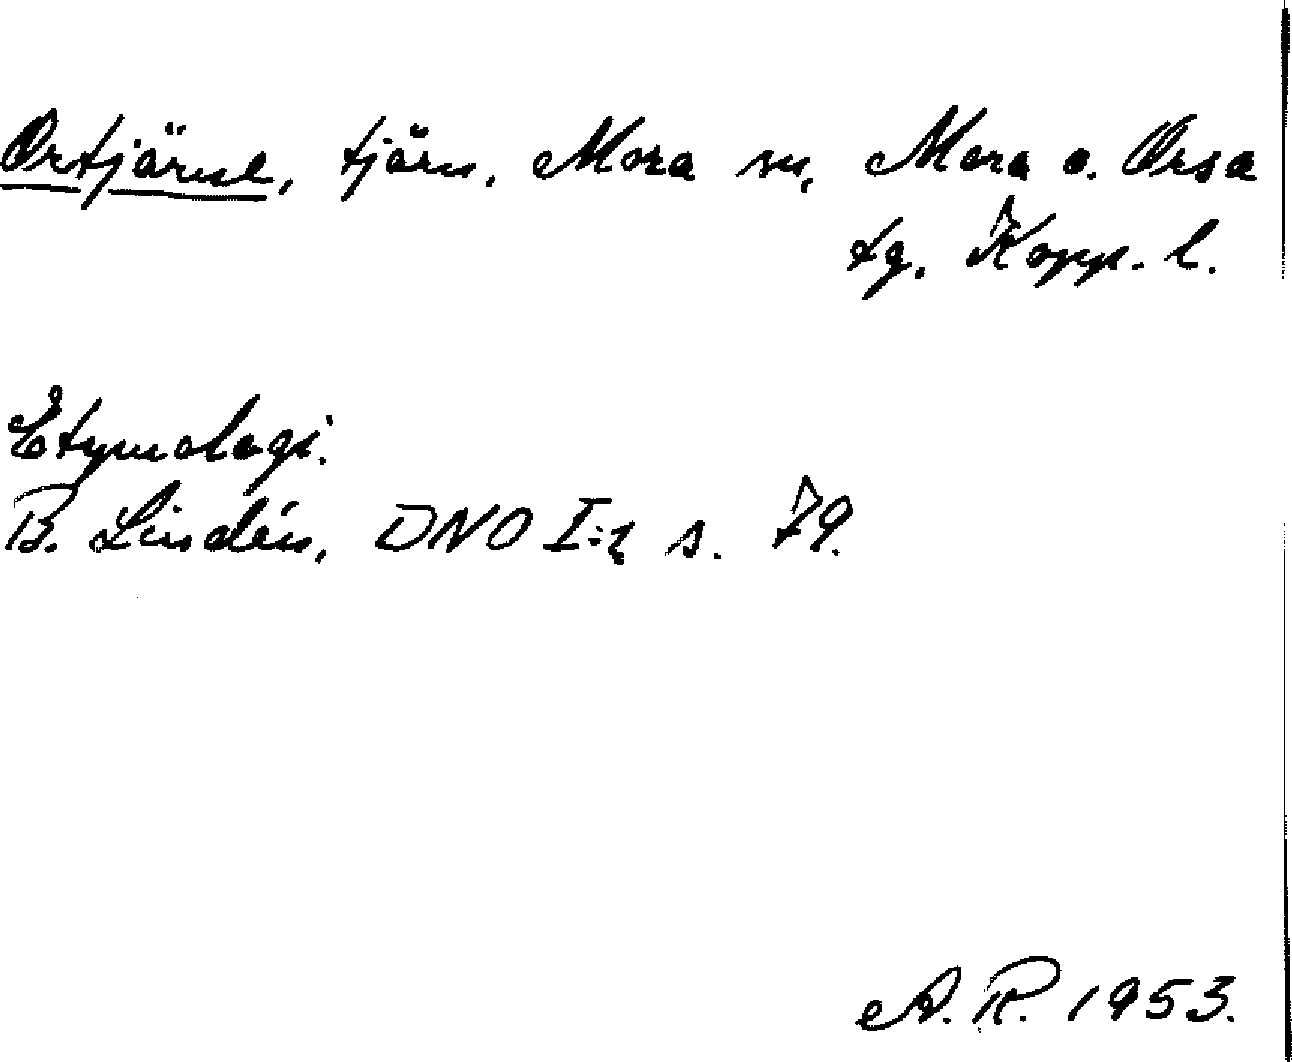 Ortjärne, tjärn, Mora sn, Mora o. Orsa
tg, Kopp. l.
Etymologi.
B. Lindén, DNO I:2 s. 79.
A. R. 1953.